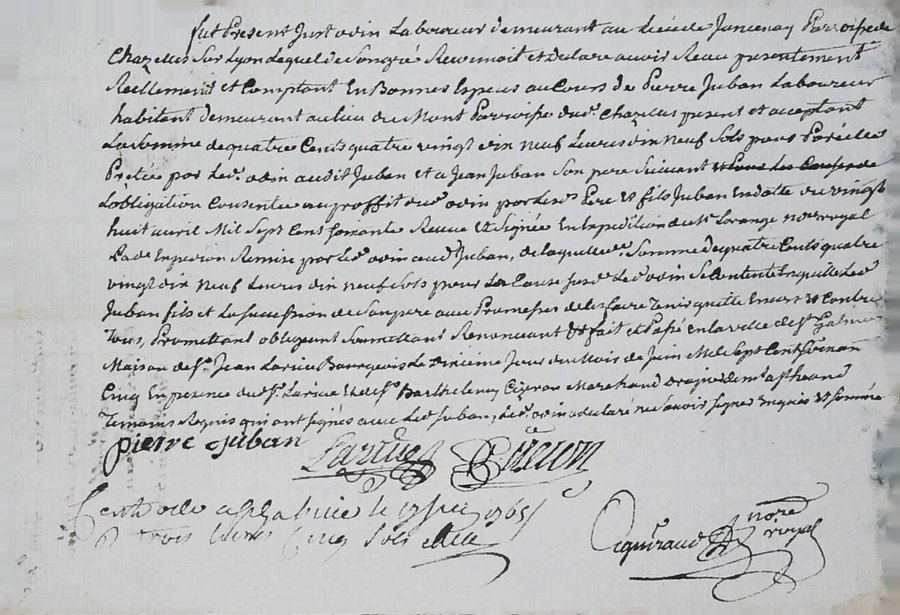 fut Present Just odin Laboureur demeurant au Lieu de Jancenay Parroisse de
Chazelles Sur Lyon Lequel de Son gré Reconnoit et declare avoir Receu presentement
Reellement et Comptant En Bonnes Especes au Cours de Pierre Juban Laboureur
habitant demeurant au lieu du Mont Parroisse dud. Chazelles present et acceptant
La Somme de quatre Cents quatre vingt dix neuf Livres dix neuf Sols pour Pareille
Pretée par Led. odin audit Juban et a Jean Juban Son pere Suivant
L'obligation Consentie au proffit dud. odin par Lesd. Pere et fils Juban En datte du vingt
huit avril Mil Sept Cent Soixante Receue et Signée En Expedition de Me. Lorange nore royal
La de Expedition Remise par Led. odin aud. Juban, de laquelle de Somme de quatre Cents quatre
vingt dix neuf Livres dix neuf Sols pour La Cause susd. Led. odin Se Contente En quitte Led.
Juban fils et La Succession de Son pere avec Promesses de les faire Tenir quitte Envers et Contre
Tous, Promettant obligeant Soumettant Renonceant &c fait et Passé en la ville de St. Galmier
Maison de Sr. Jean Larive Bourgeois Le dixieme Jour du Mois de Juin Mil Sept Cent Soixante
Cinq En presence dud. Sr. Larive et de Sr. Barthelemy Cizeron Marchand
Temoins Requis qui ont signés avec Led. Juban, Led. odin a declaré ne Scavoir signer Enquis et Sommé
pierre Juban Larive Cizeron
Centrolé a le 17 Juin 1765
R. Trois Livres Cinq Sols
nore
royal